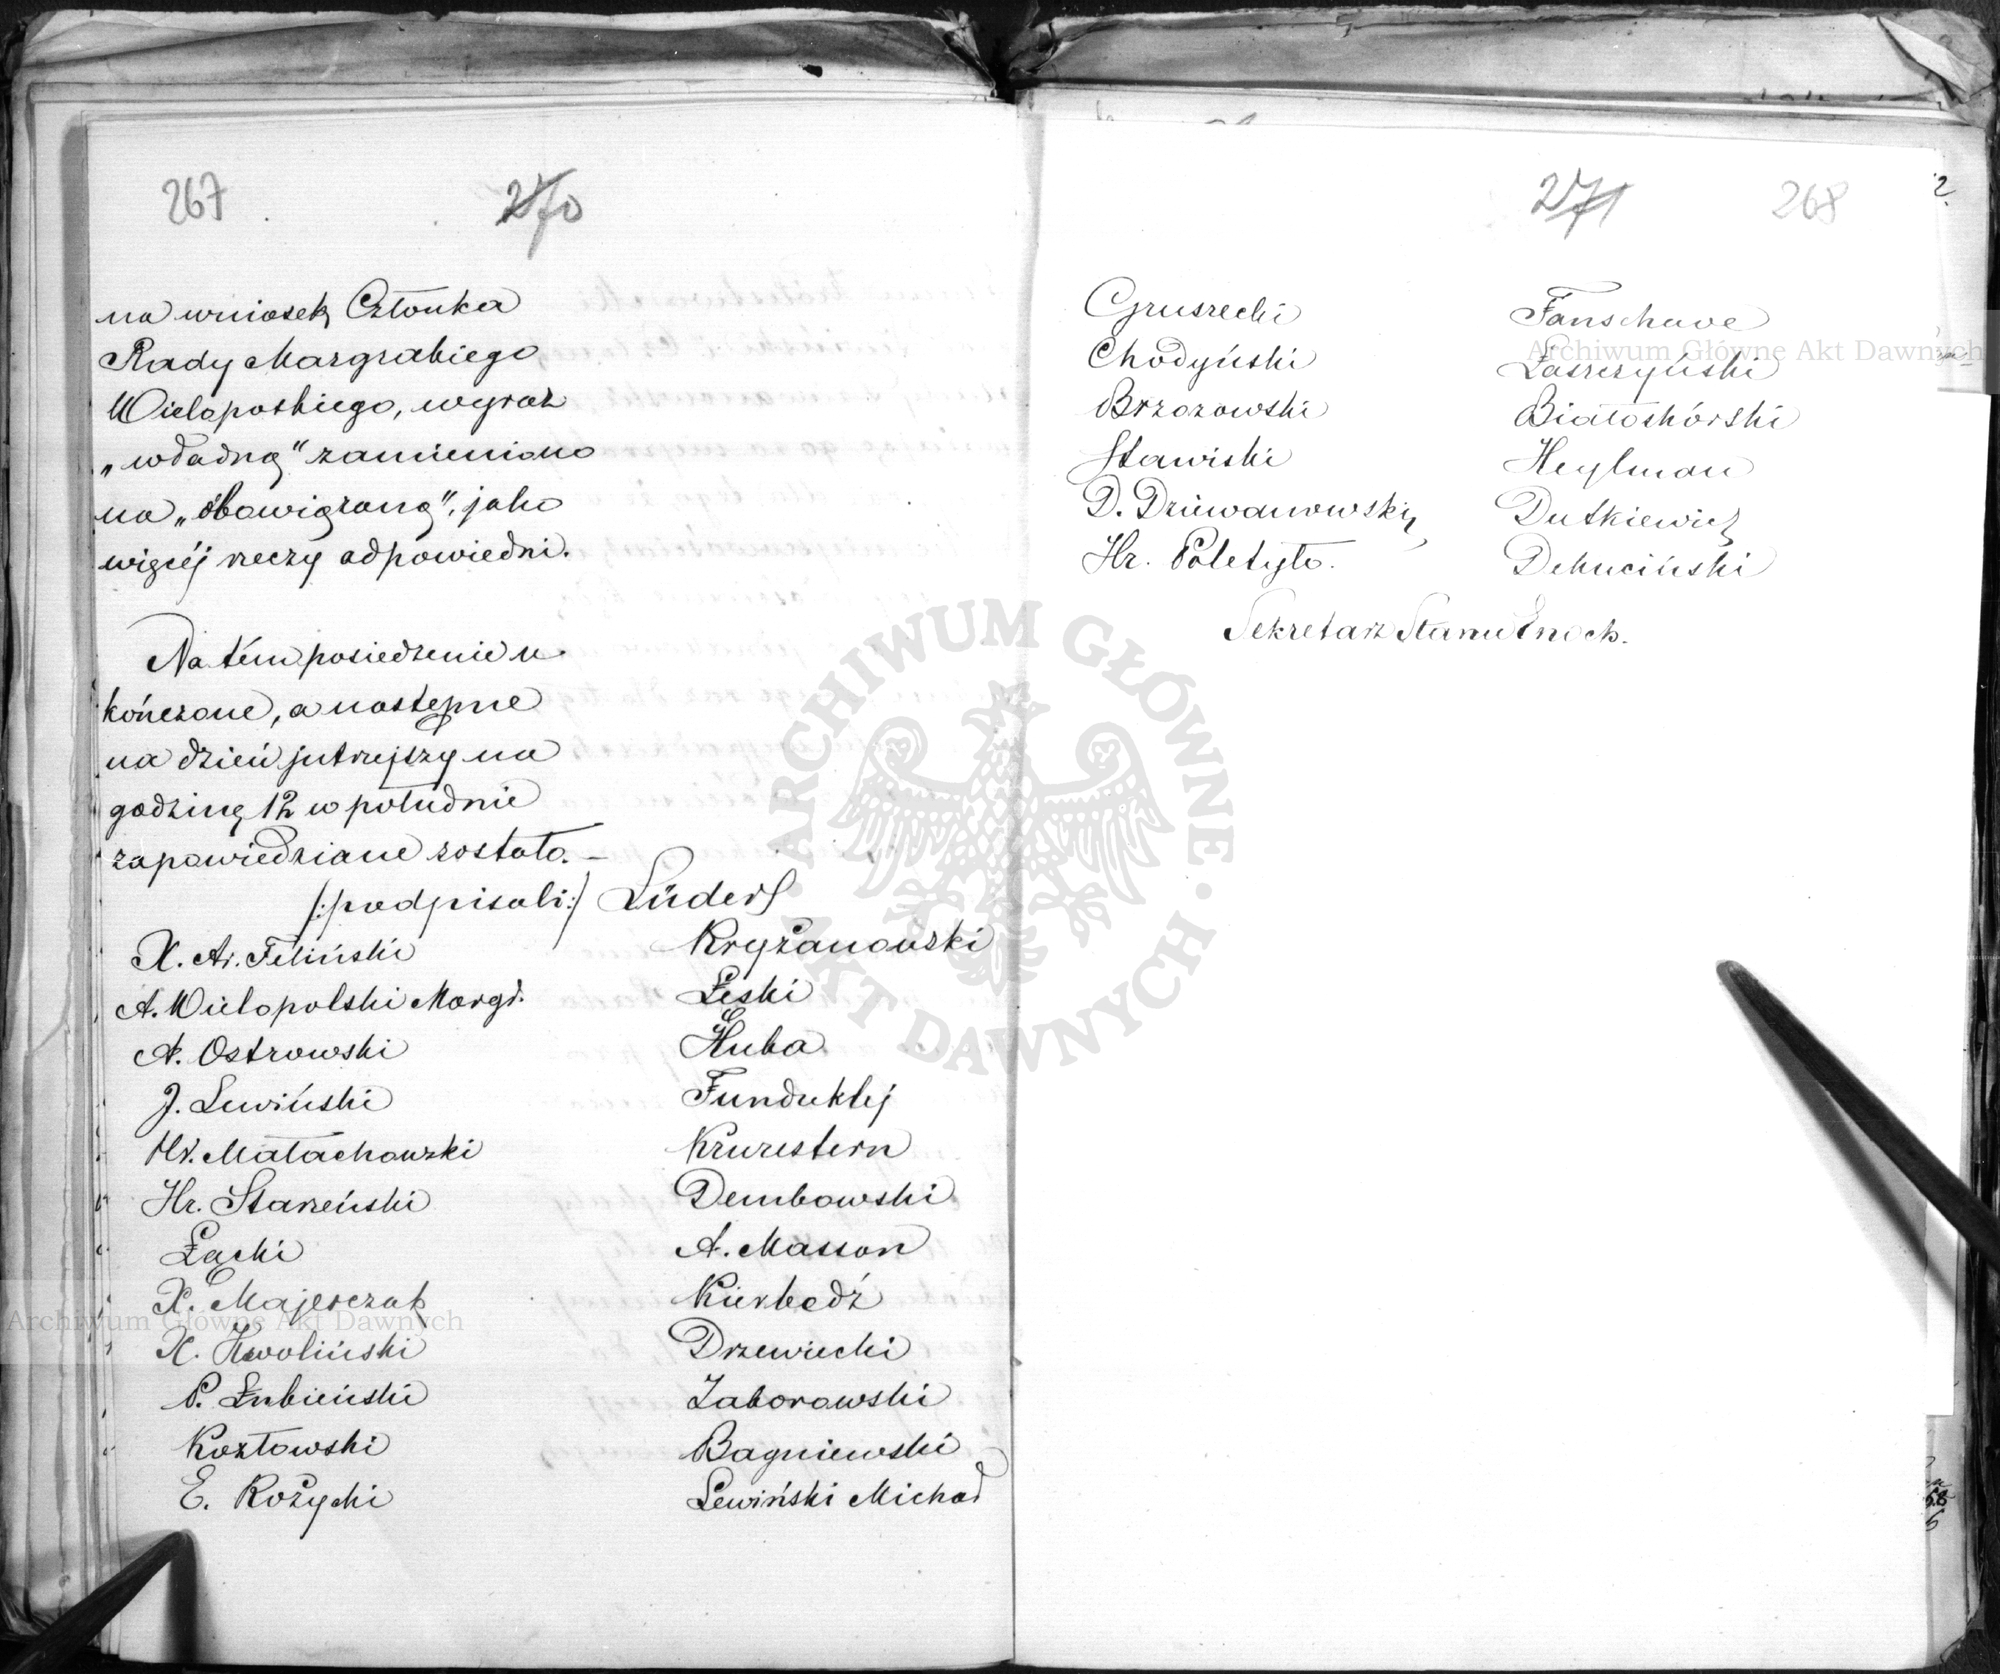 267 270
na wniosek Członka
Rady Margrabiego
Wielopolskiego, wyraz
„władną" zamieniono
na „obowiązaną", jako
więcéj rzeczy odpowiedni.
Na tém posiedzenie u
kończone, a następne
na dzień jutrzejszy na
godzinę 12 w południe
zapowiedziane zostało. —
/:podpisali:/ Lüders
X. Ar. Feliński
A. Wielopolski Margr.
A. Ostrowski
J. Lewiński
Hr. Małachowski
Hr. Starzeński
Łącki
X. Majerczak
X. Zwoliński
P. Łubieński
Kozłowski
E. Różycki
Kryżanowski
Łęski
Hube
Funduklej
Kruzestern
Dembowski
A. Masson
Kierbedź
Drzewiecki
Zaborowski
Bagniewski
Lewiński Michał
271 268
Gruszecki
Chodyński
Brzozowski
Stawiski
D. Dziewanowski
Hr. Poletyło.
Fanschave
Łaszczyński
Białoskórski
Heylman
Dutkiewicz
Dekuciński
Sekretarz Stanu Enoch.
ARCHIWUM GŁÓWNE AKT DAWNYCH
Archiwum Główne Akt Dawnych
Archiwum Główne Akt Dawnych